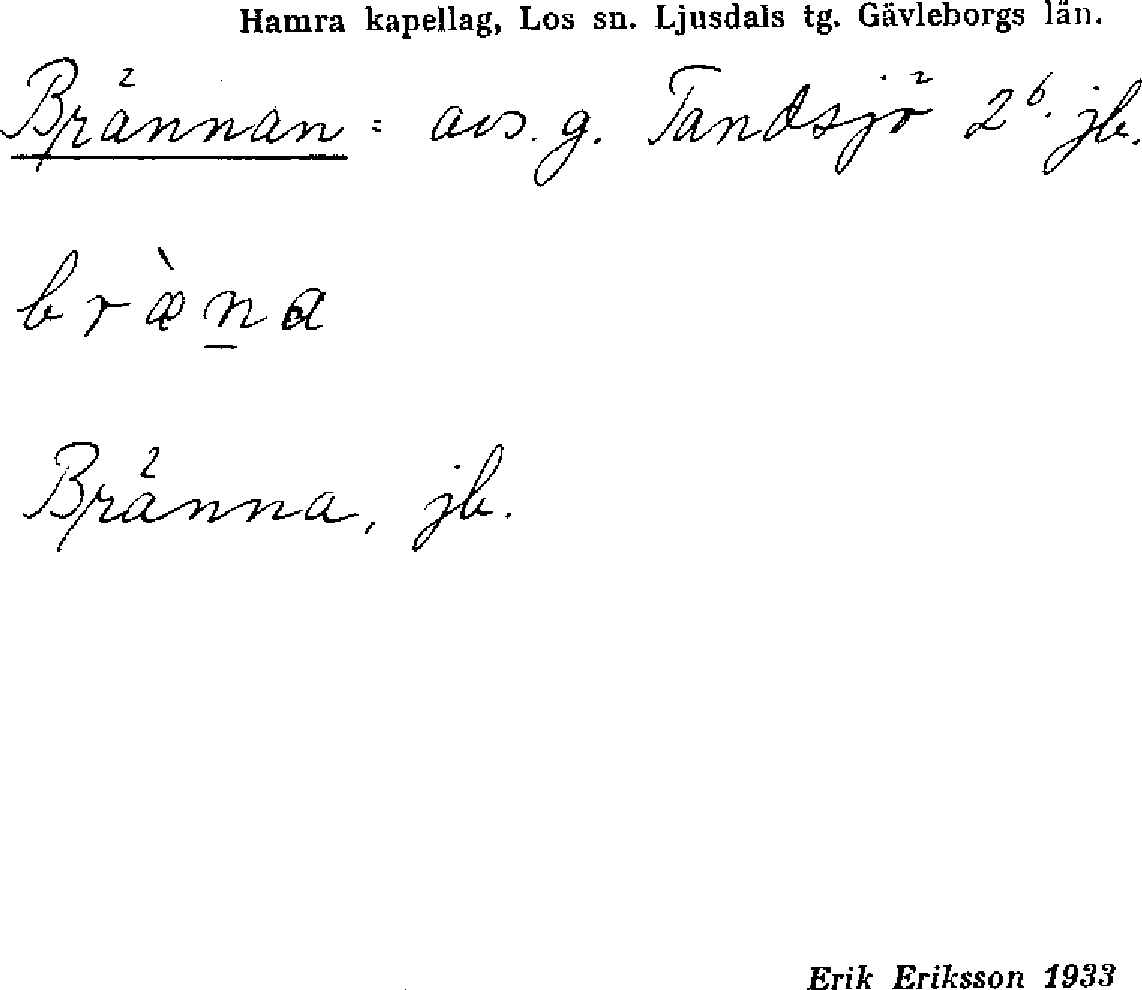 Hamra kapellag, Los sn. Ljusdals tg. Gävleborgs län.
Brännan = avs. g. Tandsjö 2⁶. jb.
br&#x00e6;̀n̲a
Bränna, jb.
Erik Eriksson 1933